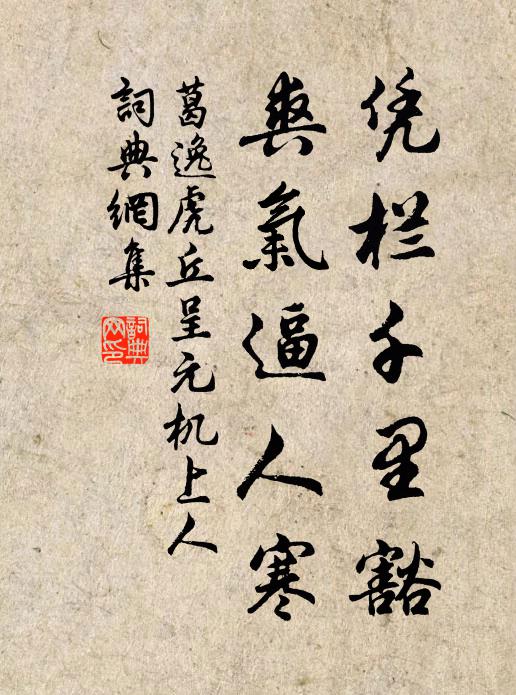 凭栏千里豁
爽氣逼人寒
葛逸虎丘呈元机上人
詞典網集
詞典
网印